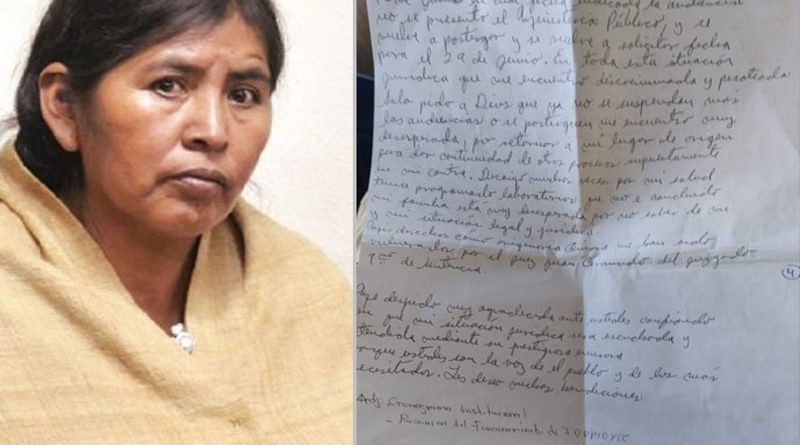 la audiencia
no se presentó el Ministerio Público, y se
vuelve a postergar y se vuelve a solicitar fecha
para el 29 de Junio. En toda esta situación
jurídica que me encuentro discriminada y pisoteada
Solo pido a Dios que ya no se suspendan más
las audiencias o se posterguen me encuentro muy
desesperada, por retornar a mi lugar de origen
para dar continuidad de otros procesos supuestamente
en mi contra. Decaigo muchas veces por mi salud
tenía programado laboratorios que no e concluido
mi familia está muy desesperada por no saber de mi
y mi situación legal y jurídica.
derechos como originaria no han sido
por el juez Juan del juzgado
de Sentencia.
4
Me despido muy agradecida ante ustedes confiando
en que mi situación jurídica sea escuchada y
atendida mediante su prestigiosa emisora
porque ustedes son la voz de el pueblo y de los más
necesitados. Les deseo muchas bendiciones
Adj: Cronograma Institucional
- Resumen del Funcionamiento de